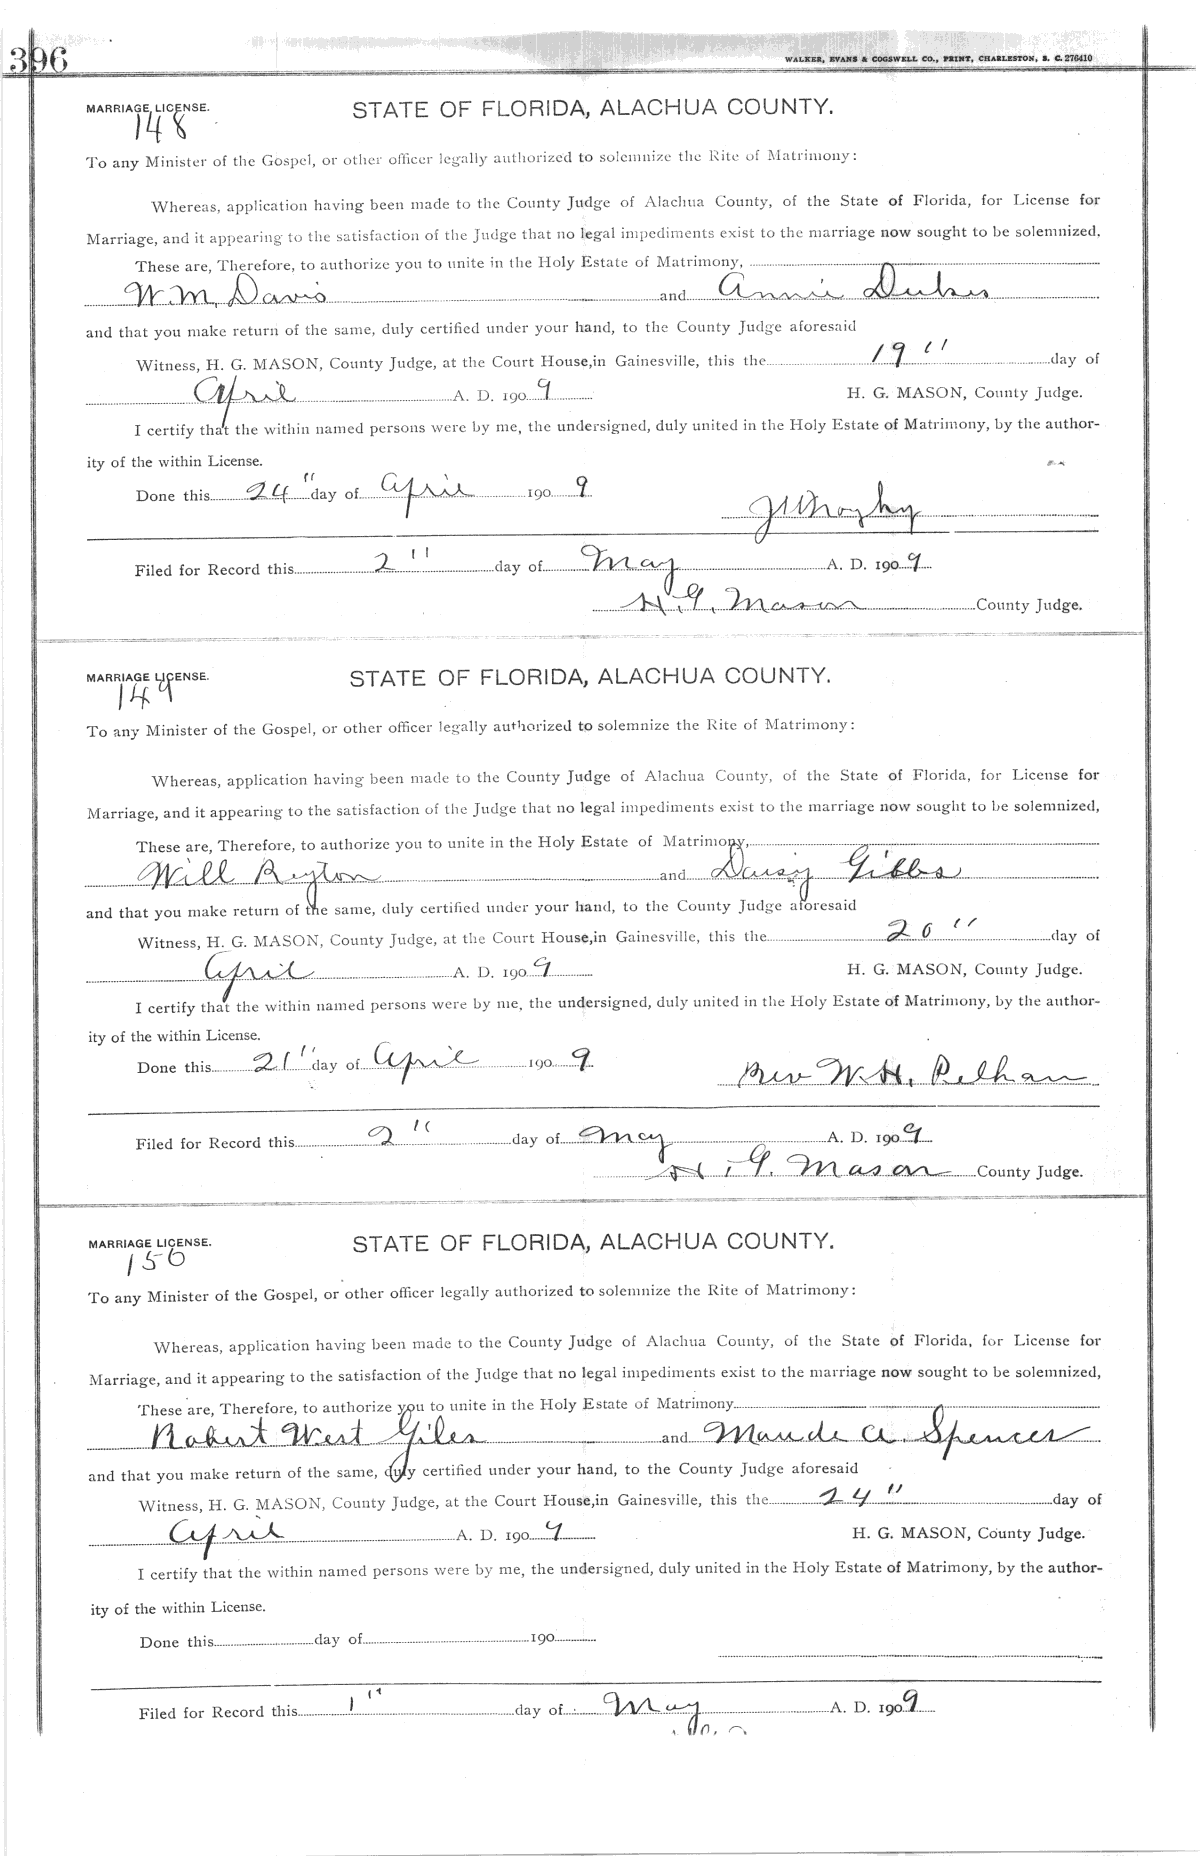 396
WALKER, EVANS & COGSWELL CO., PRINT, CHARLESTON, S. C. 276410
MARRIAGE LICENSE. STATE OF FLORIDA, ALACHUA COUNTY.
148
To any Minister of the Gospel, or other officer legally authorized to solemnize the Rite of Matrimony:
Whereas, application having been made to the County Judge of Alachua County, of the State of Florida, for License for
Marriage, and it appearing to the satisfaction of the Judge that no legal impediments exist to the marriage now sought to be solemnized,
These are, Therefore, to authorize you to unite in the Holy Estate of Matrimony,
W. M. Davis and Annie Dukes
and that you make return of the same, duly certified under your hand, to the County Judge aforesaid
Witness, H. G. MASON, County Judge, at the Court House, in Gainesville, this the 19" day of
April A. D. 1909 H. G. MASON, County Judge.
I certify that the within named persons were by me, the undersigned, duly united in the Holy Estate of Matrimony, by the author-
ity of the within License.
Done this 24" day of April 1909
Filed for Record this 2" day of May A. D. 1909
H. G. Mason County Judge.
MARRIAGE LICENSE. STATE OF FLORIDA, ALACHUA COUNTY.
149
To any Minister of the Gospel, or other officer legally authorized to solemnize the Rite of Matrimony:
Whereas, application having been made to the County Judge of Alachua County, of the State of Florida, for License for
Marriage, and it appearing to the satisfaction of the Judge that no legal impediments exist to the marriage now sought to be solemnized,
These are, Therefore, to authorize you to unite in the Holy Estate of Matrimony,
Will and Daisy Gibbs
and that you make return of the same, duly certified under your hand, to the County Judge aforesaid
Witness, H. G. MASON, County Judge, at the Court House, in Gainesville, this the 20" day of
April A. D. 1909 H. G. MASON, County Judge.
I certify that the within named persons were by me, the undersigned, duly united in the Holy Estate of Matrimony, by the author-
ity of the within License.
Done this 21" day of April 1909 Rev W. H. Pelham
Filed for Record this 2" day of May A. D. 1909
H. G. Mason County Judge.
MARRIAGE LICENSE. STATE OF FLORIDA, ALACHUA COUNTY.
150
To any Minister of the Gospel, or other officer legally authorized to solemnize the Rite of Matrimony:
Whereas, application having been made to the County Judge of Alachua County, of the State of Florida, for License for
Marriage, and it appearing to the satisfaction of the Judge that no legal impediments exist to the marriage now sought to be solemnized,
These are, Therefore, to authorize you to unite in the Holy Estate of Matrimony
Robert West Giles and Maude A. Spencer
and that you make return of the same, duly certified under your hand, to the County Judge aforesaid
Witness, H. G. MASON, County Judge, at the Court House, in Gainesville, this the 24" day of
April A. D. 1909 H. G. MASON, County Judge.
I certify that the within named persons were by me, the undersigned, duly united in the Holy Estate of Matrimony, by the author-
ity of the within License.
Done this day of 190
Filed for Record this 1" day of May A. D. 1909